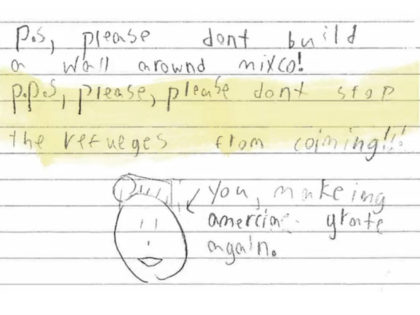 p.s, please dont build
a wall around mixco!
p.p.s, please, please dont stop
the refueges from coiming!!!
you, makeing
amercian grate
again.